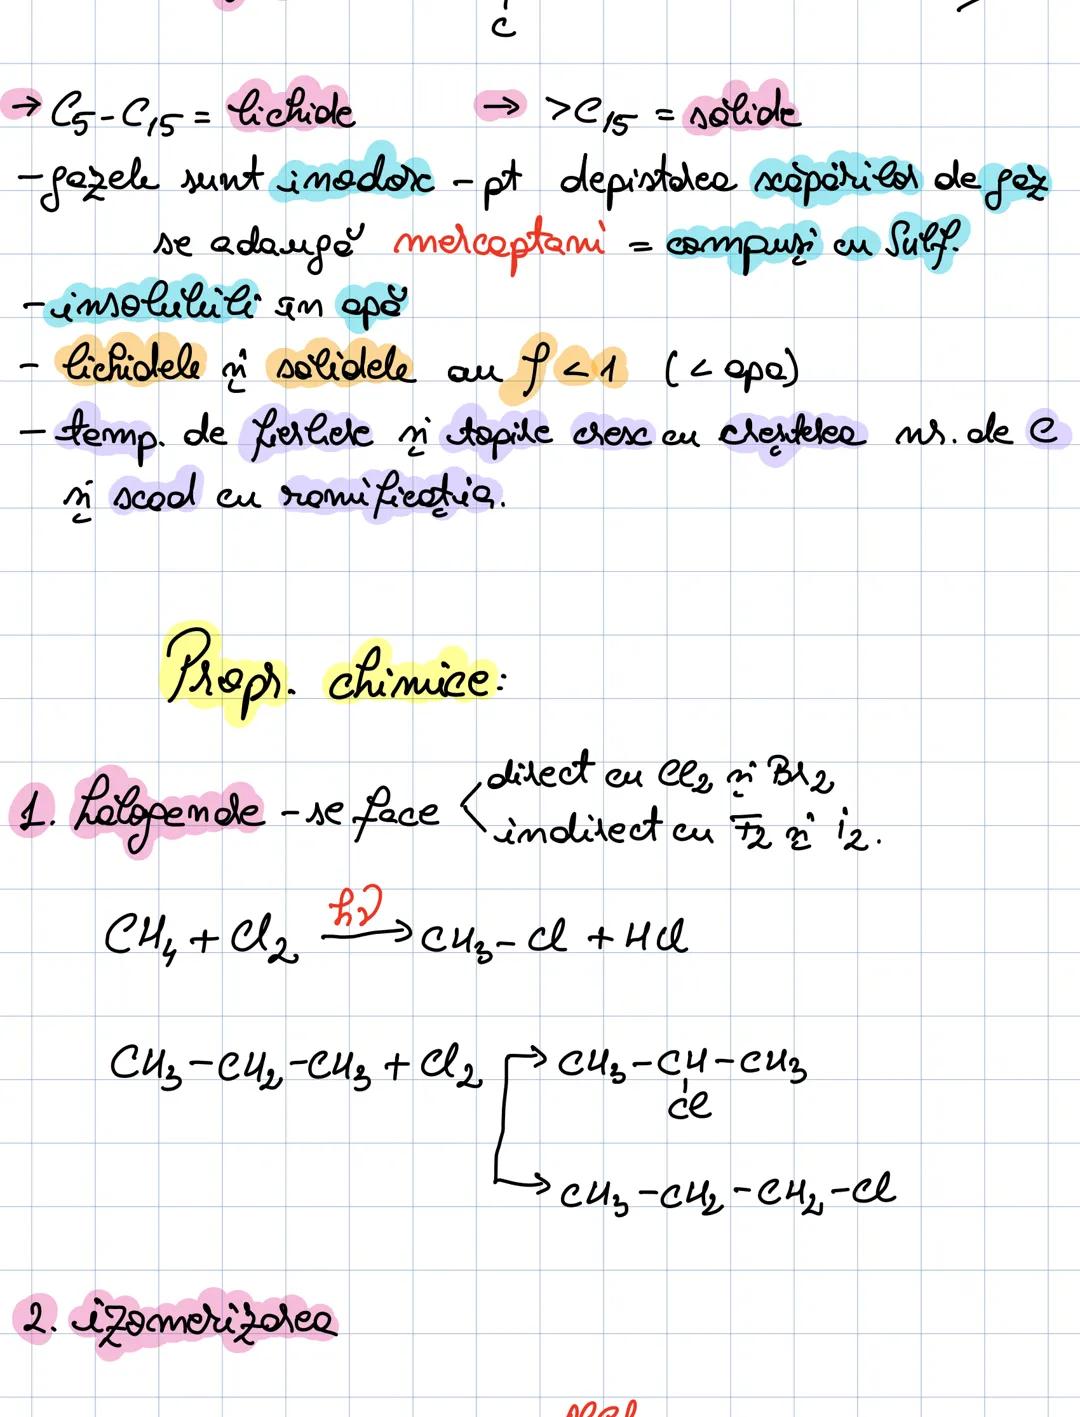 C
→ C5-C15 = lichide → >C15 = solide
- gazele sunt inodore - pt depistarea scăpărilor de gaz
se adaugă mercaptani = compuși cu Sulf.
- insolubili în apă
- lichidele și solidele au ρ < 1 (< apa)
- temp. de fierbere și topire cresc cu creșterea nr. de C
și scad cu ramificația.
Propr. chimice:
1. halogenare - se face
direct cu Cl2 și Br2
indirect cu F2 și i2.
hν
CH4 + Cl2 → CH3-Cl + HCl
CH3-CH2-CH3 + Cl2 → CH3-CH-CH3
Cl
→ CH3-CH2-CH2-Cl
2. izomerizarea